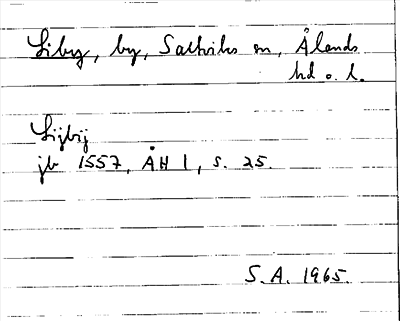 Liby, by, Saltviks sn, Ålands
hd o. l.
Lijbij
jb 1557, ÅH 1, s. 25.
S.A. 1965.